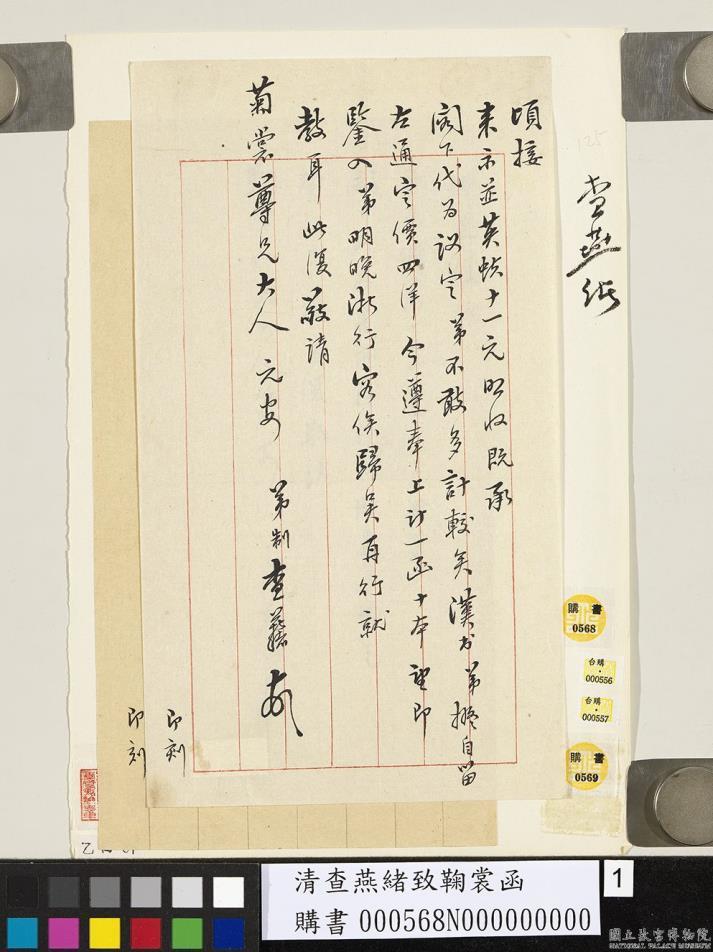 頃接
來示並英蚨十一元照收既承
閣下代為議定弟不敢多計較矣漢書弟擬自留
左通定價四洋今遵奉上計一函十本望即
鑒入弟明晚浙行容俟歸吳再行就
教耳此復敬請
菊裳尊兄大人元安 弟制查燕
即刻
即刻
查燕緒
125
購書
0568
台購
000556
台購
000557
購書
0569
清查燕緒致鞠裳函
購書000568N000000000
1
國立故宮博物院
NATIONAL PALACE MUSEUM